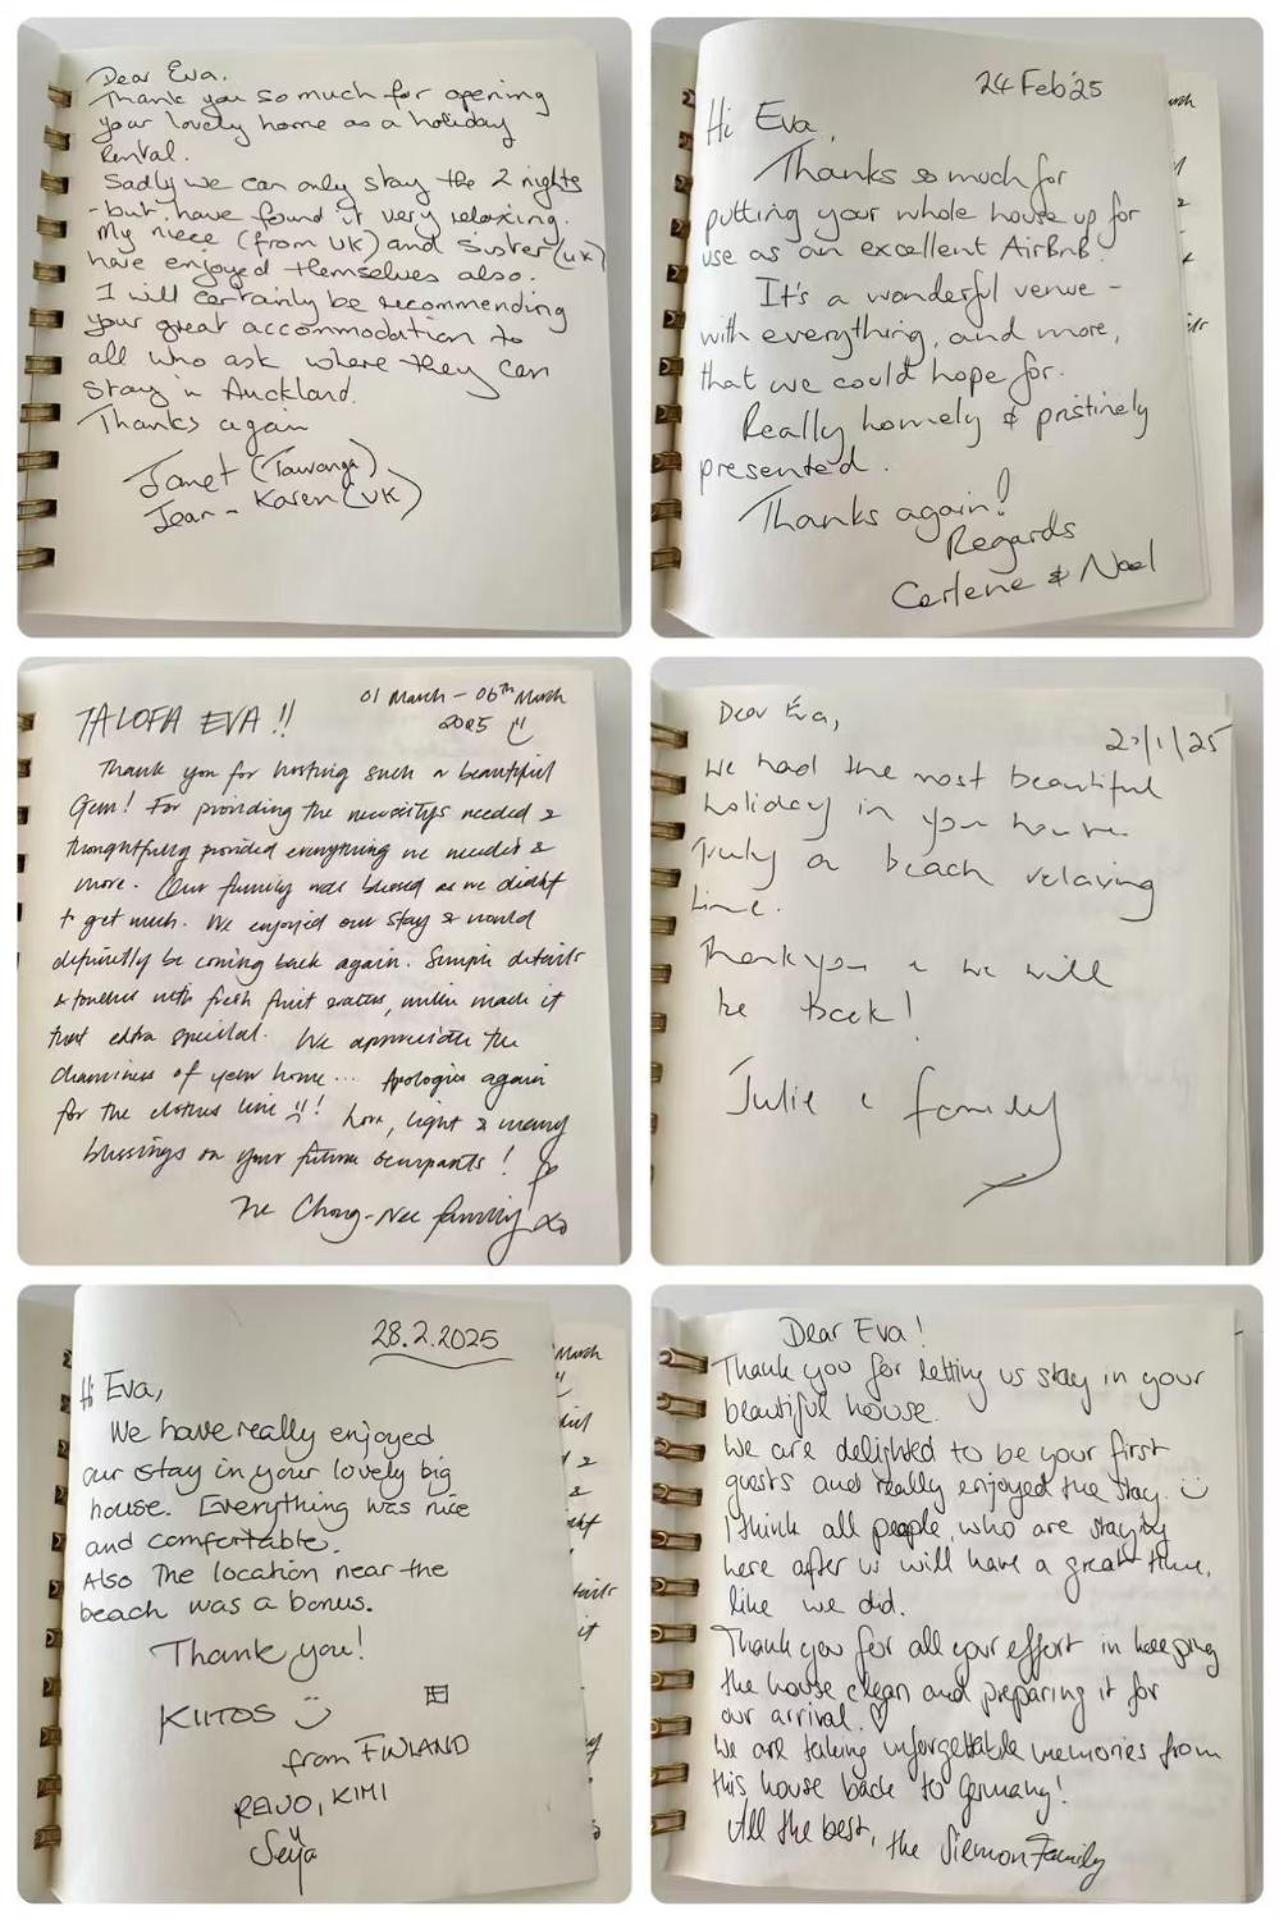 Dear Eva.
Thank you so much for opening
your lovely home as a holiday
Rental.
Sadly we can only stay the 2 nights
- but have found it very relaxing.
My niece (from UK) and Sister (UK)
have enjoyed themselves also.
I will certainly be recommending
your great accommodation to
all who ask where they can
Stay in Auckland.
Thanks again
Janet (Tauranga)
Jean - Karen (UK)
24 Feb '25
Hi Eva,
Thanks so much for
putting your whole house up for
use as an excellent AirBnB.
It's a wonderful venue -
with everything, and more,
that we could hope for.
Really homely & pristinely
presented.
Thanks again!
Regards
Carlene & Noel
01 March - 06th March
2025
TALOFA EVA !!
Thank you for hosting such a beautiful
Gem! For providing the needed &
thoughtfully provided everything we needed &
more. Our family was blessed as we didn't
to get much. We enjoyed our stay & would
definetly be coming back again. Simple details
& touches with fresh fruit made it
that extra special. We appreciate the
of your home... Apologies again
for the clothes line !! Love, light & many
blessings on your future occupants!
The Chong-Nee family xo
Dear Eva,
/1/25
We had the most beautiful
holiday in your house.
Truly a beach relaxing
time.
Thank you & we will
be back!
Julie & family
28.2.2025
Hi Eva,
We have really enjoyed
our stay in your lovely big
house. Everything was nice
and comfortable.
Also the location near the
beach was a bonus.
Thank you!
KIITOS
from FINLAND
REIJO, KIMI
Seija
Dear Eva!
Thank you for letting us stay in your
beautiful house.
We are delighted to be your first
guests and really enjoyed the stay.
I think all people, who are staying
here after us will have a great time,
like we did.
Thank you for all your effort in keeping
the house clean and preparing it for
our arrival.
We are taking unforgettable memories from
this house back to Germany!
All the best, the Siemon Family